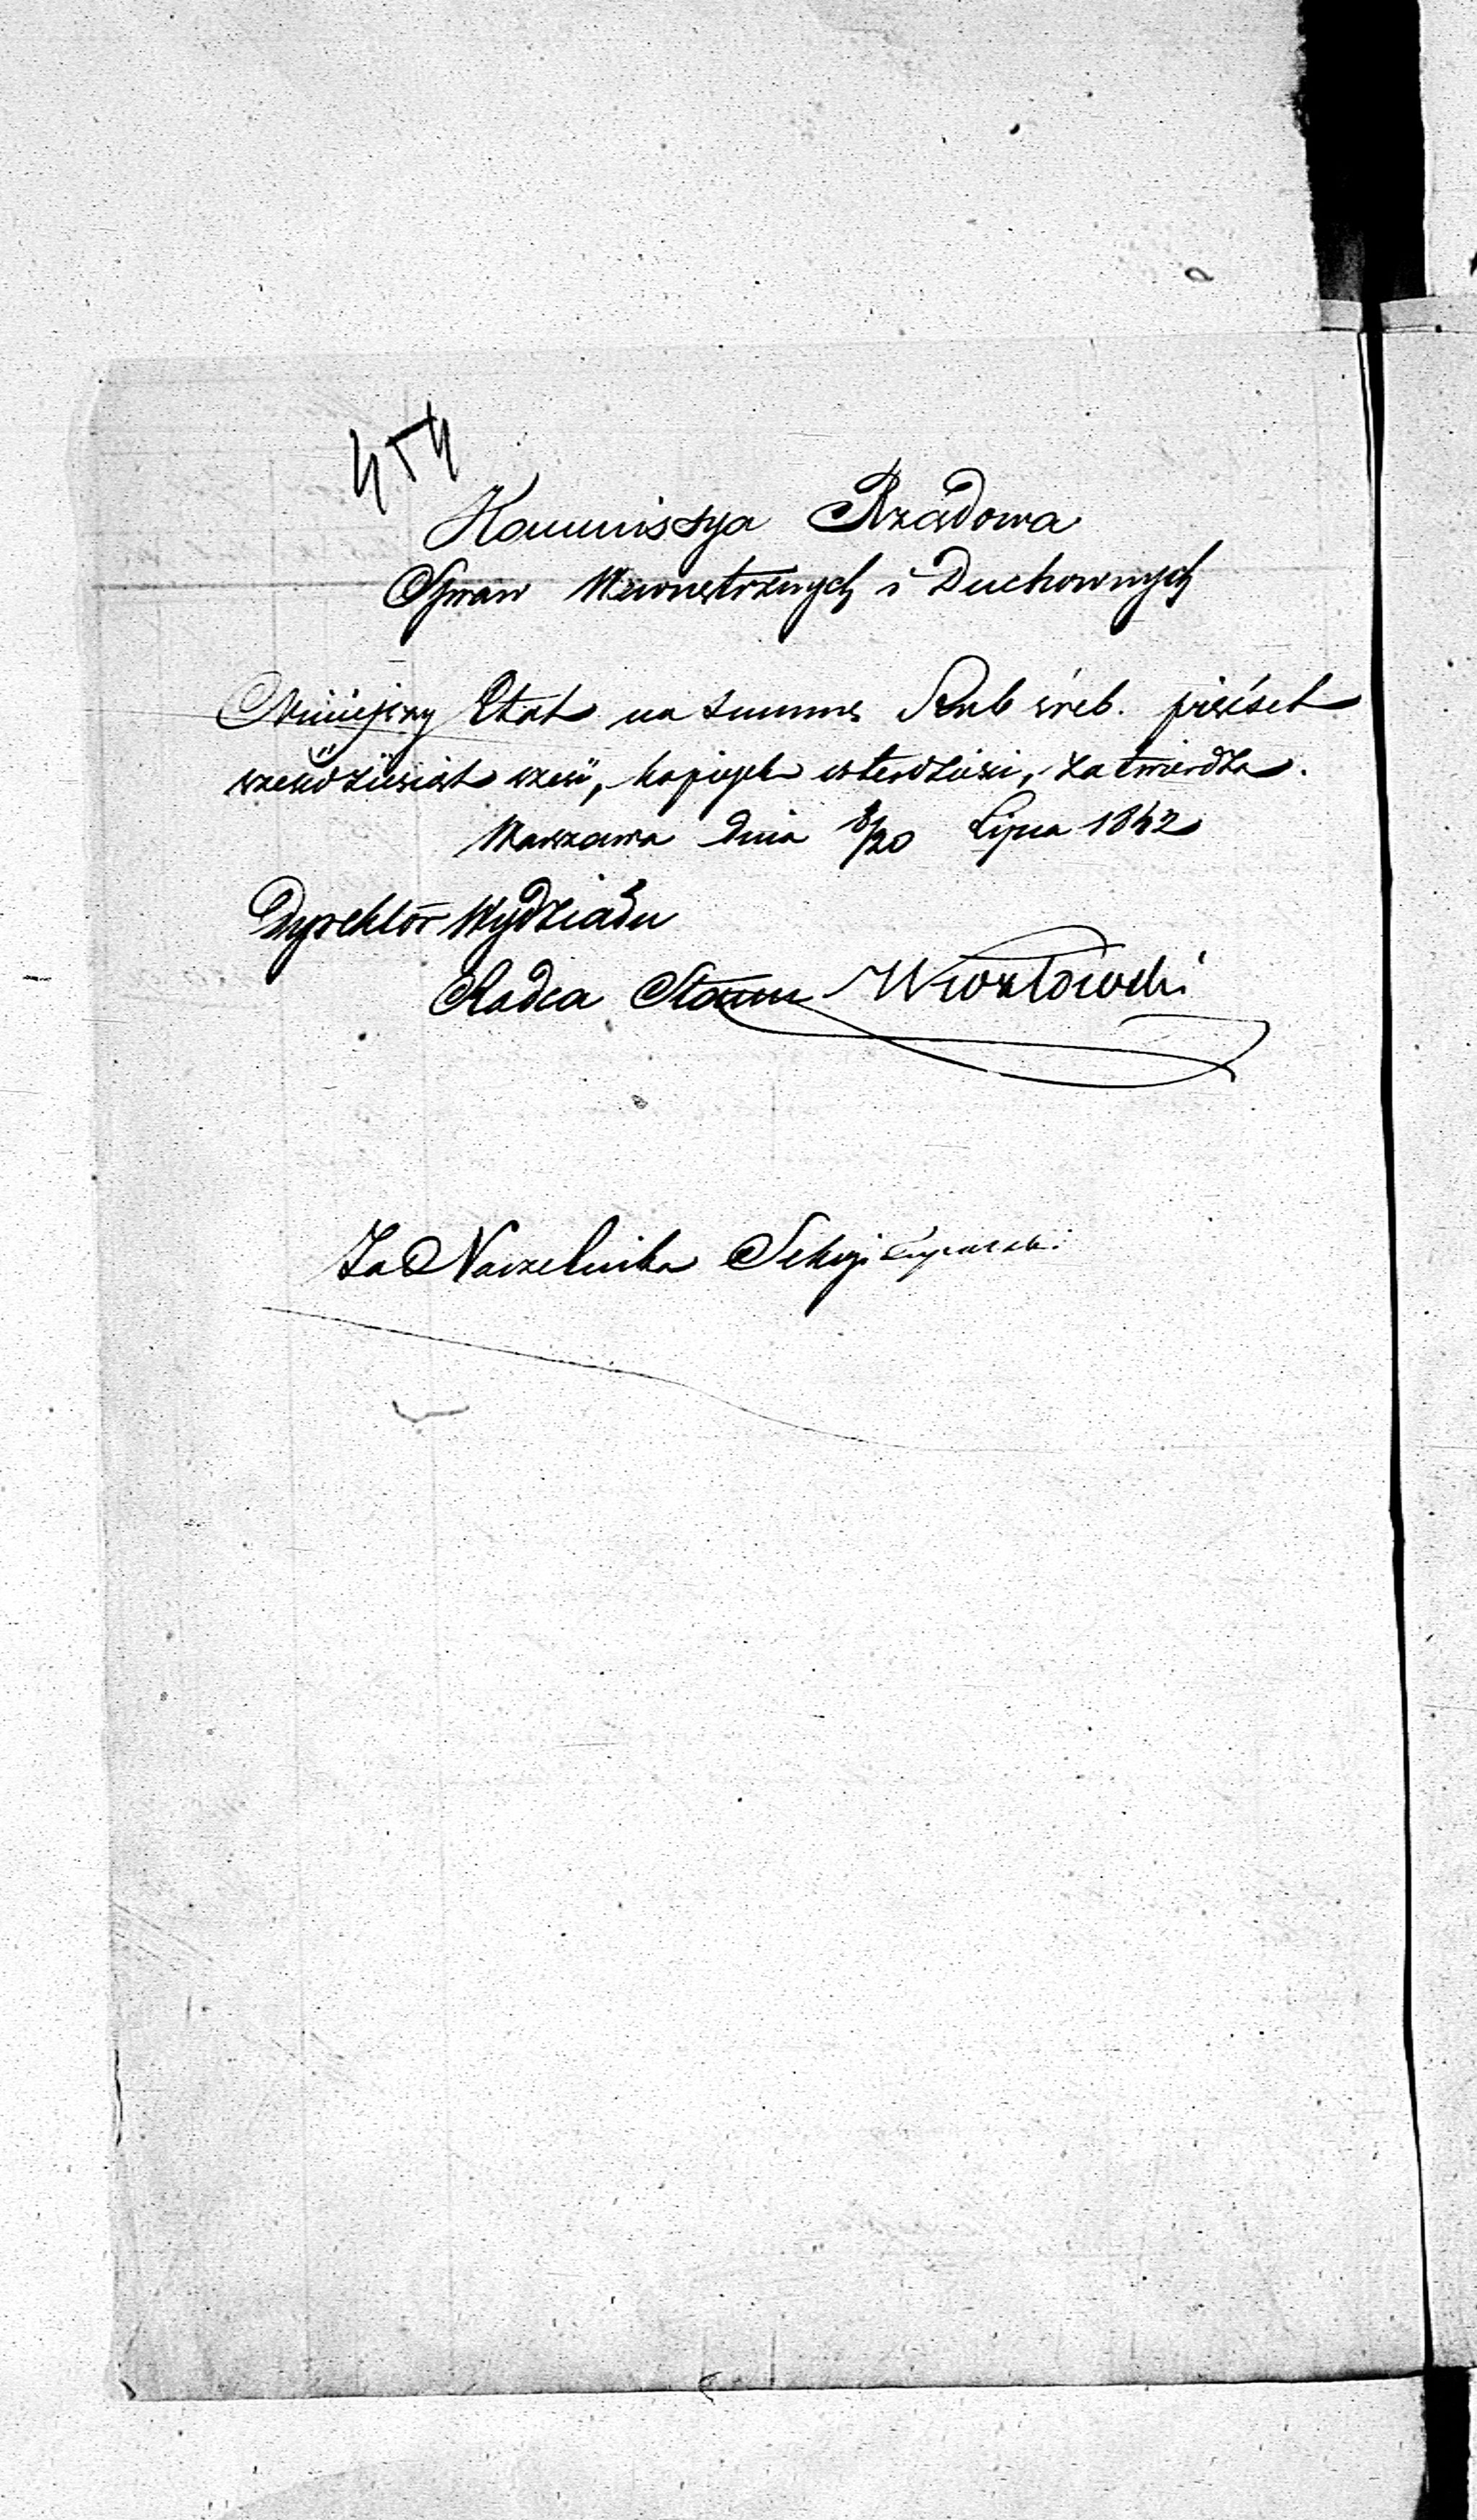 454
Kommissya Rządowa
Spraw Wewnętrznych i Duchownych
Niniejszy Etat na summę Rub sreb. pięćset
sześćdziesiąt sześć, kopiejek czterdzieści, zatwierdza.
Warszawa dnia 8/20 Lipca 1842
Dyrektor Wydziału
Radca Stanu
Za Naczelnika Sekcyi